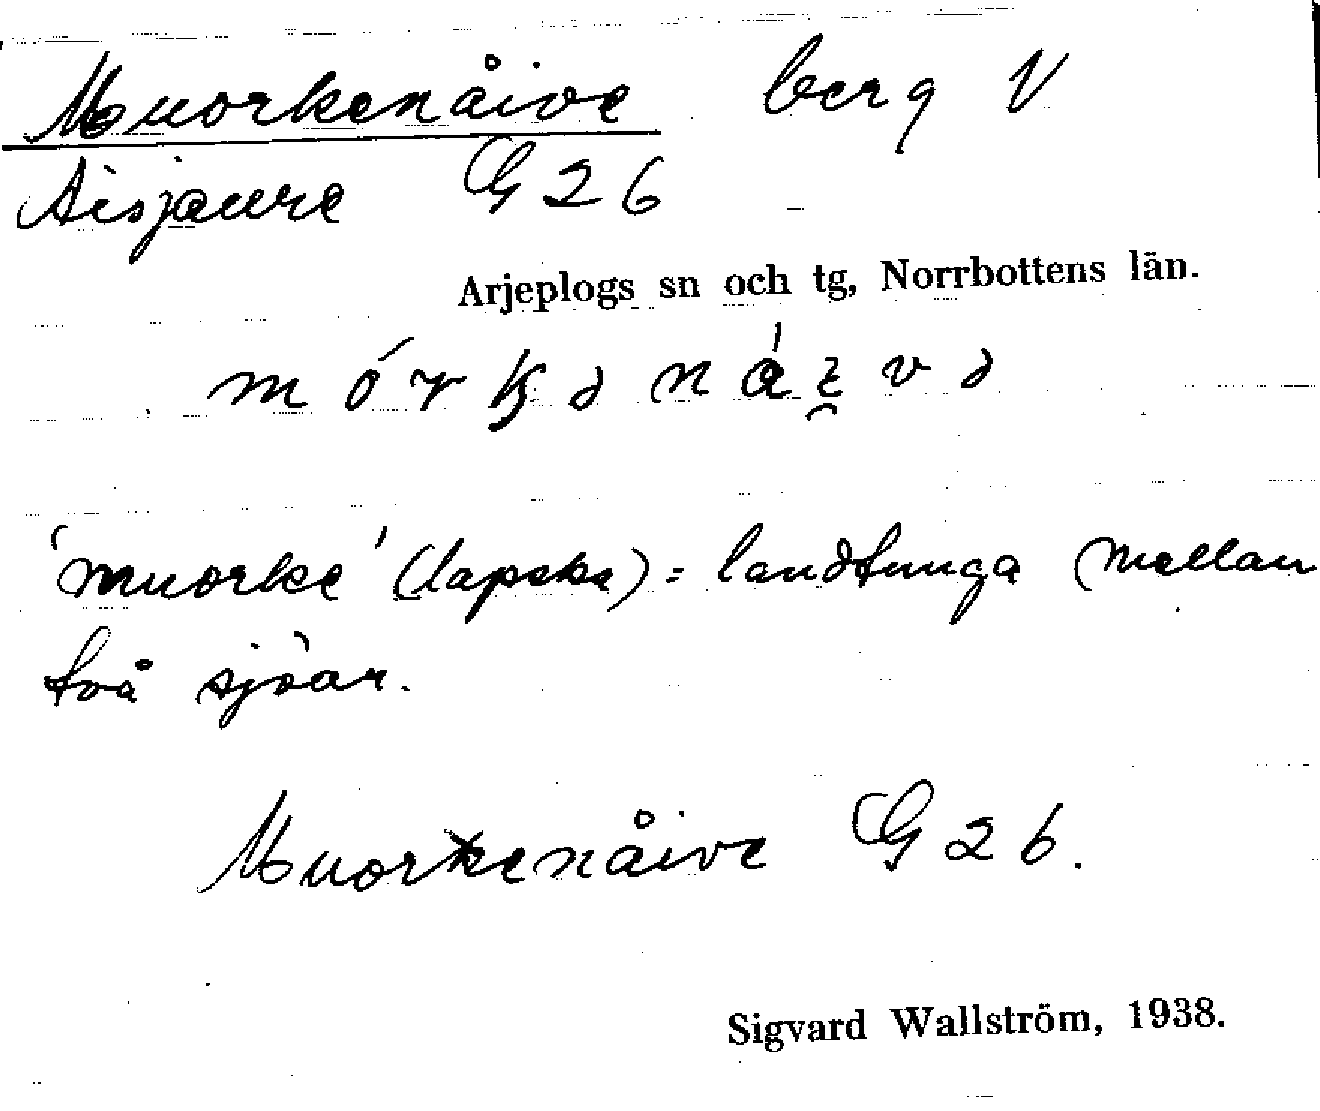 Muorkenåive berg V
Aisjaure G 26
Arjeplogs sn och tg, Norrbottens län.
'muorke' (lapska) = landtunga (mellan
två sjöar.
Muorkenåive G 26.
Sigvard Wallström, 1938.